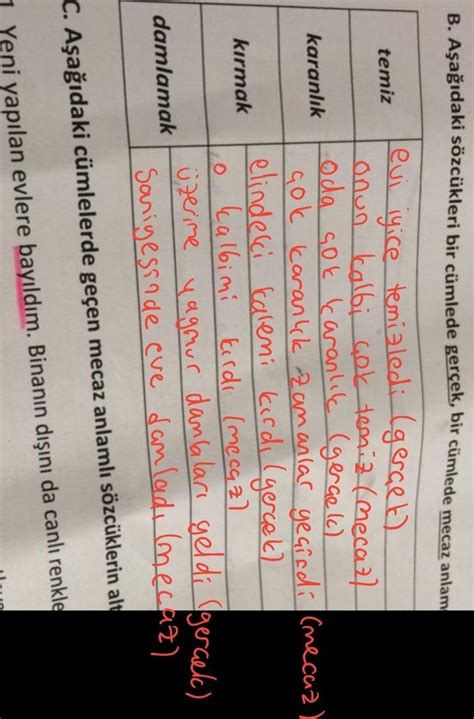 B. Aşağıdaki sözcükleri bir cümlede gerçek, bir cümlede mecaz anlam
temiz
evi iyice temizledi (gerçek)
onun kalbi çok temiz (mecaz)
karanlık
oda çok karanlık (gerçek)
çok karanlık zamanlar geçirdi (mecaz)
kırmak
elindeki kalemi kırdı (gerçek)
o kalbimi kırdı (mecaz)
damlamak
üzerine yağmur damlaları geldi (gerçek)
saniyesinde eve damladı (mecaz)
C. Aşağıdaki cümlelerde geçen mecaz anlamlı sözcüklerin alt
1 Yeni yapılan evlere bayıldım. Binanın dışını da canlı renkle